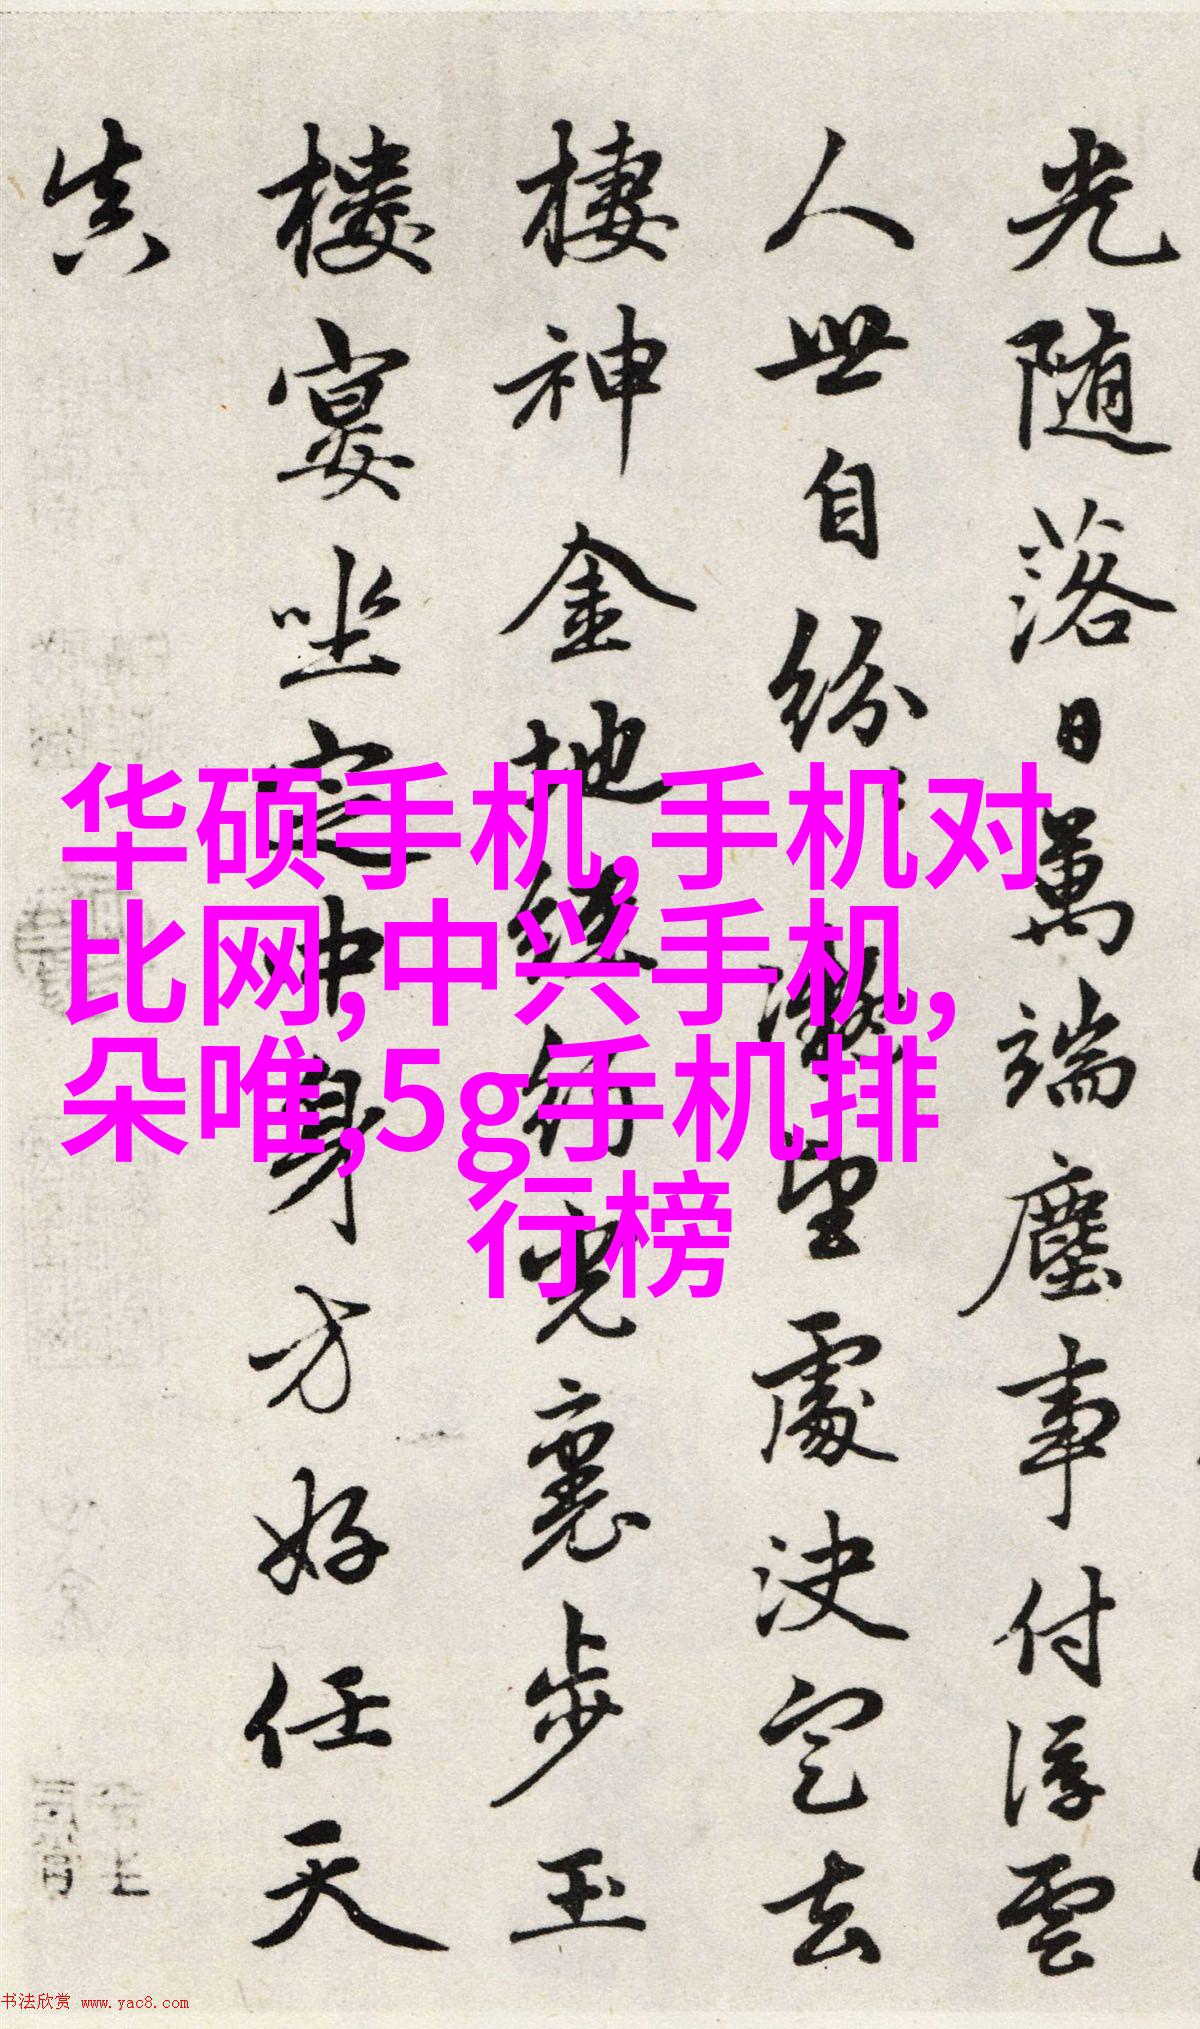 光随落日萬端塵事付浮雲
人世自纷望處决定去
棲神金地步玉
楼宴坐定中身方好任天
真
华硕手机,手机对
比网,中兴手机,
朵唯,5g手机排
行榜
书法欣赏 www.yac8.com